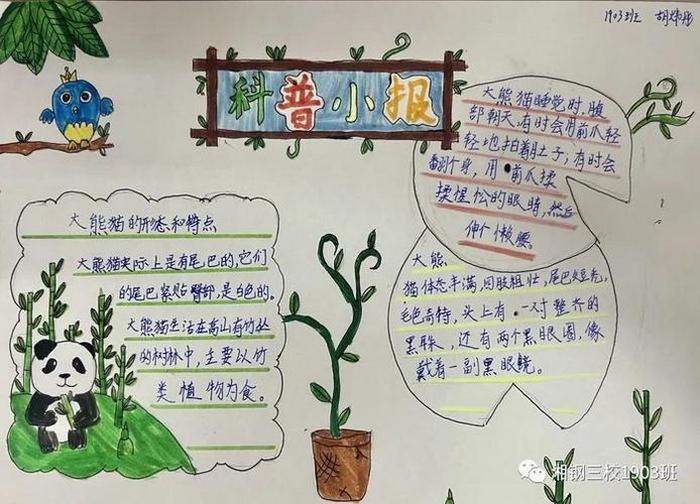 1903班
科普小报
大熊猫睡觉时,腹
部朝天,有时会用前爪轻
轻地拍着肚子;有时会
翻个身,用前爪揉
揉惺松的眼睛,然后
伸个懒腰。
大熊猫的形态和特点
大熊猫实际上是有尾巴的,它们
的尾巴紧贴臀部,是白色的。
大熊猫生活在高山有竹丛
的树林中,主要以竹
类植物为食。
大熊
猫体态丰满,四肢粗壮,尾巴短秃,
毛色奇特,头上有一对整齐的
黑耳朵,还有两个黑眼圈,像
戴着一副黑眼镜。
湘钢三校1903班